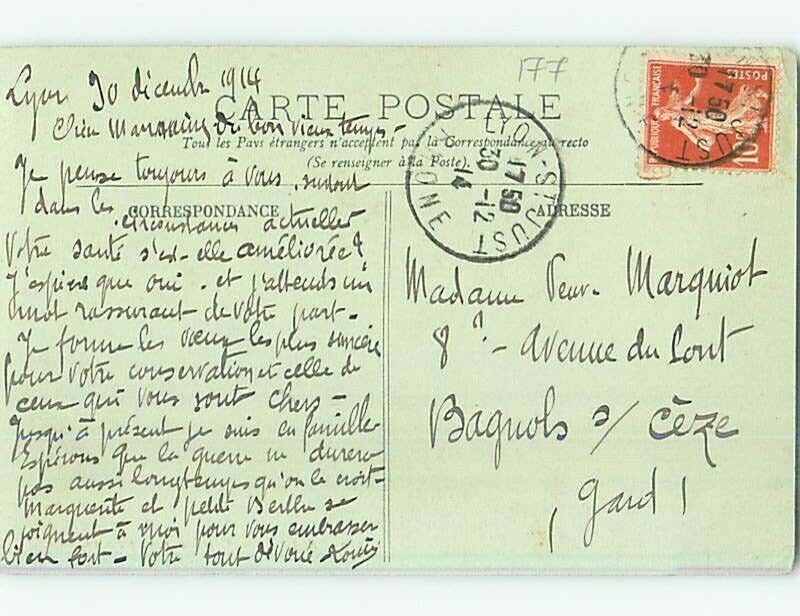 177
Lyon 30 décembre 1914
CARTE POSTALE
Chère du bon vieux temps -
Tous les Pays étrangers n'acceptent pas la Correspondance au recto
(Se renseigner à la Poste).
Je pense toujours à vous, surtout
dans les circonstances actuelles
CORRESPONDANCE
Votre santé s'est-elle améliorée?
J'espère que oui - et j'attends un
mot rassurant de votre part -
Je forme les vœux les plus sincères
pour votre conservation et celle de
ceux qui vous sont chers -
Jusqu'à présent je suis en famille
Espérons que la guerre ne durera
pas aussi longtemps qu'on le croit -
Marguerite et petite Berthe se
joignent à moi pour vous embrasser
bien fort - Votre tout dévoué Louis
ADRESSE
Madame Veuve Marquiot
8 ? - Avenue du Pont
Bagnols s/ Cèze
(Gard)
LYON-ST JUST
17 50
30 -12
14
RHONE
REPUBLIQUE FRANÇAISE
POSTES
10
17 50
30 -12
ST JUST